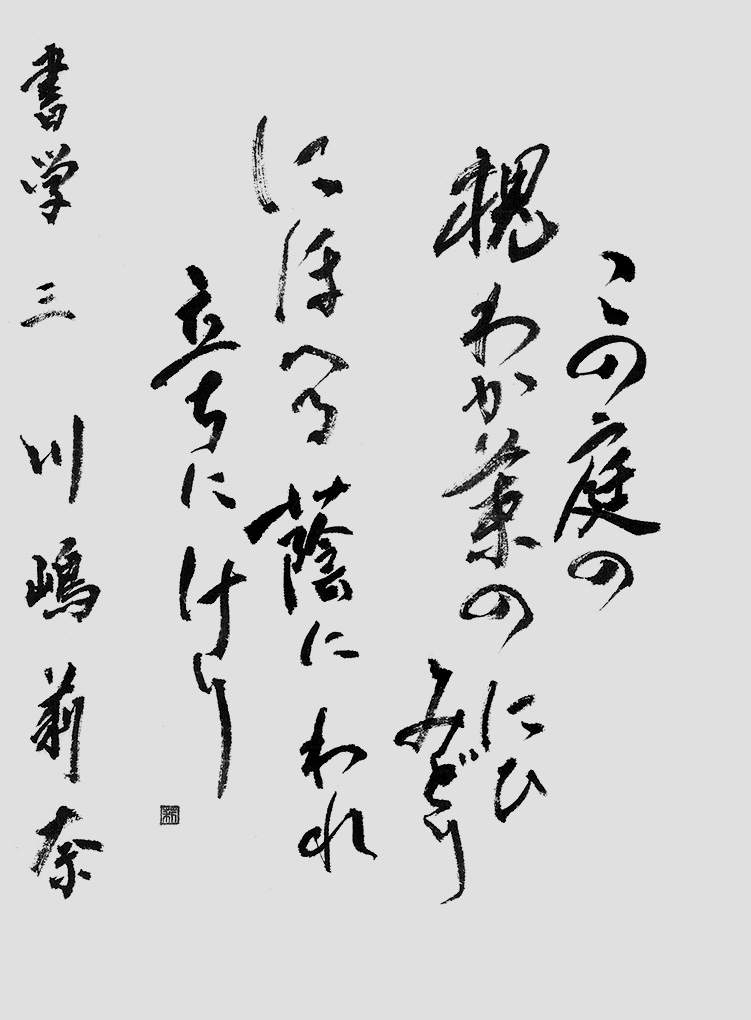 この庭の
槐わか葉の
にひ
みどり
にほへる蔭にわれ
立ちにけり
書学 三 川嶋莉奈